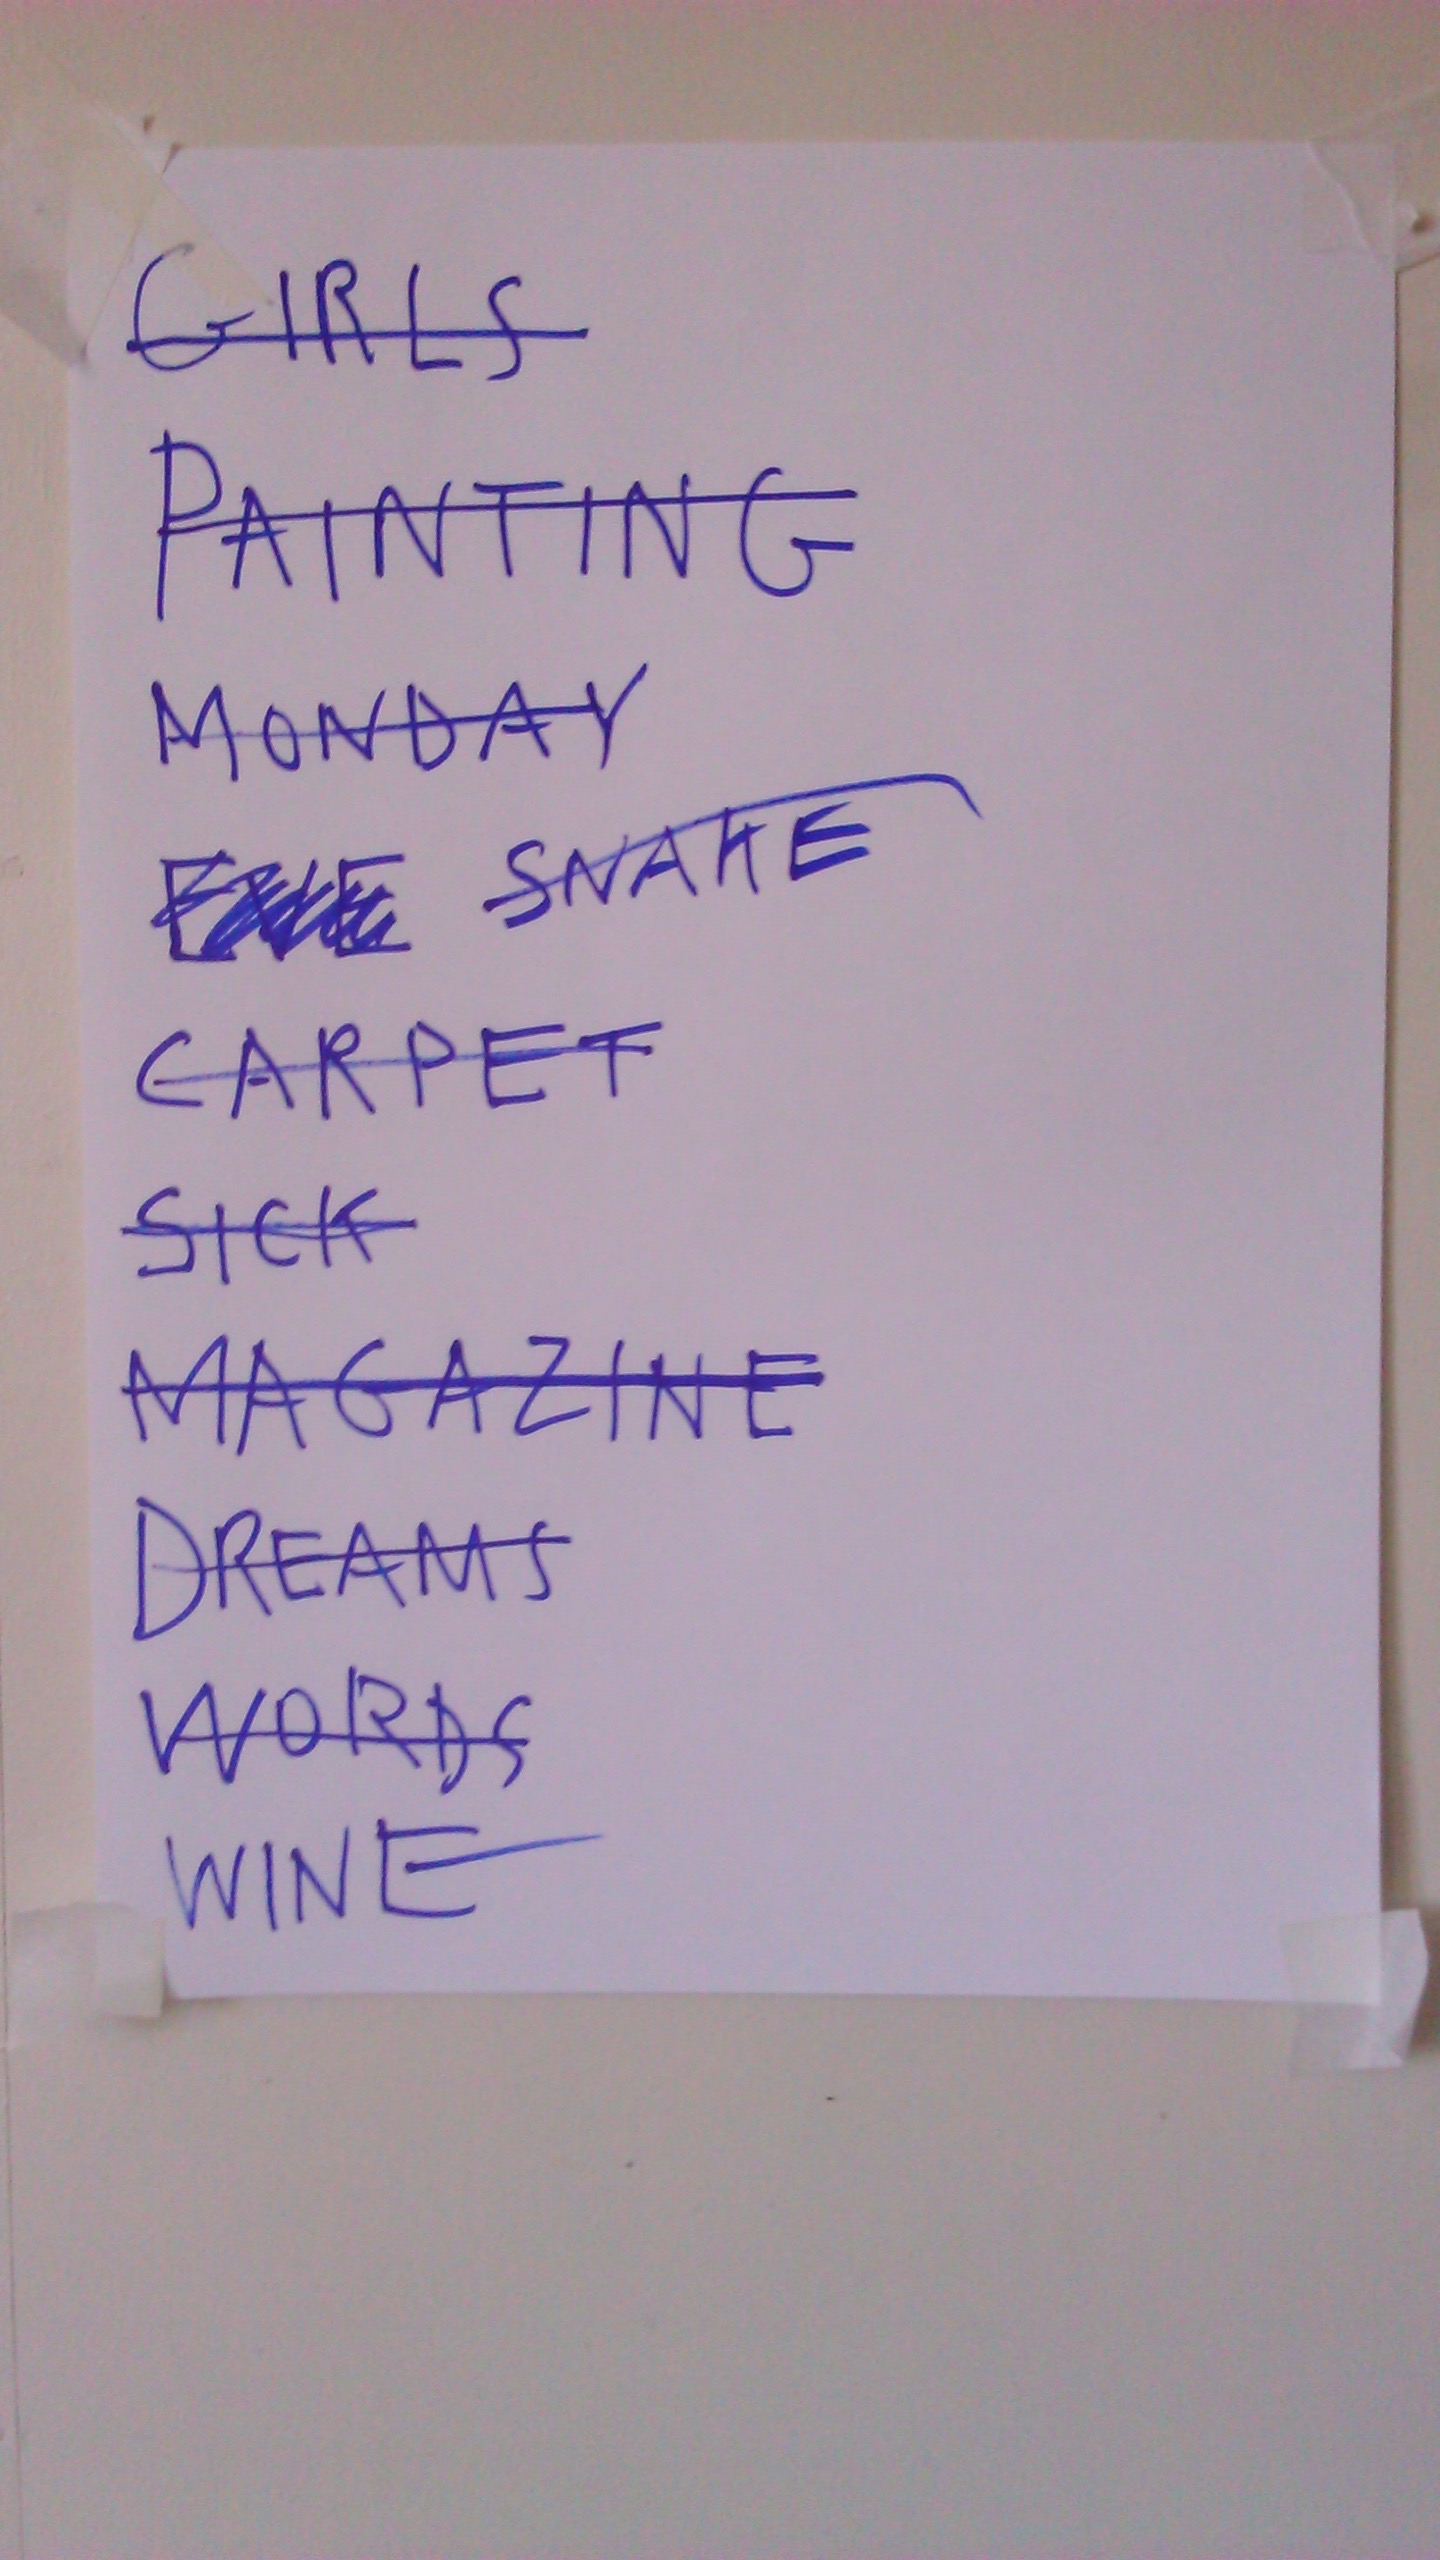 GIRLS
PAINTING
MONDAY
SNAKE
CARPET
SICK
MAGAZINE
DREAMS
WORDS
WINE